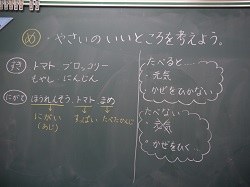 め ・やさいのいいところを考えよう。
すき トマト ブロッコリー
もやし にんじん
にがて ほうれんそう、トマト、まめ
にがい すっぱい たべたかんじ
(あじ)
たべると…
・元気
・かぜをひかない
たべない
・元気
・かぜをひく